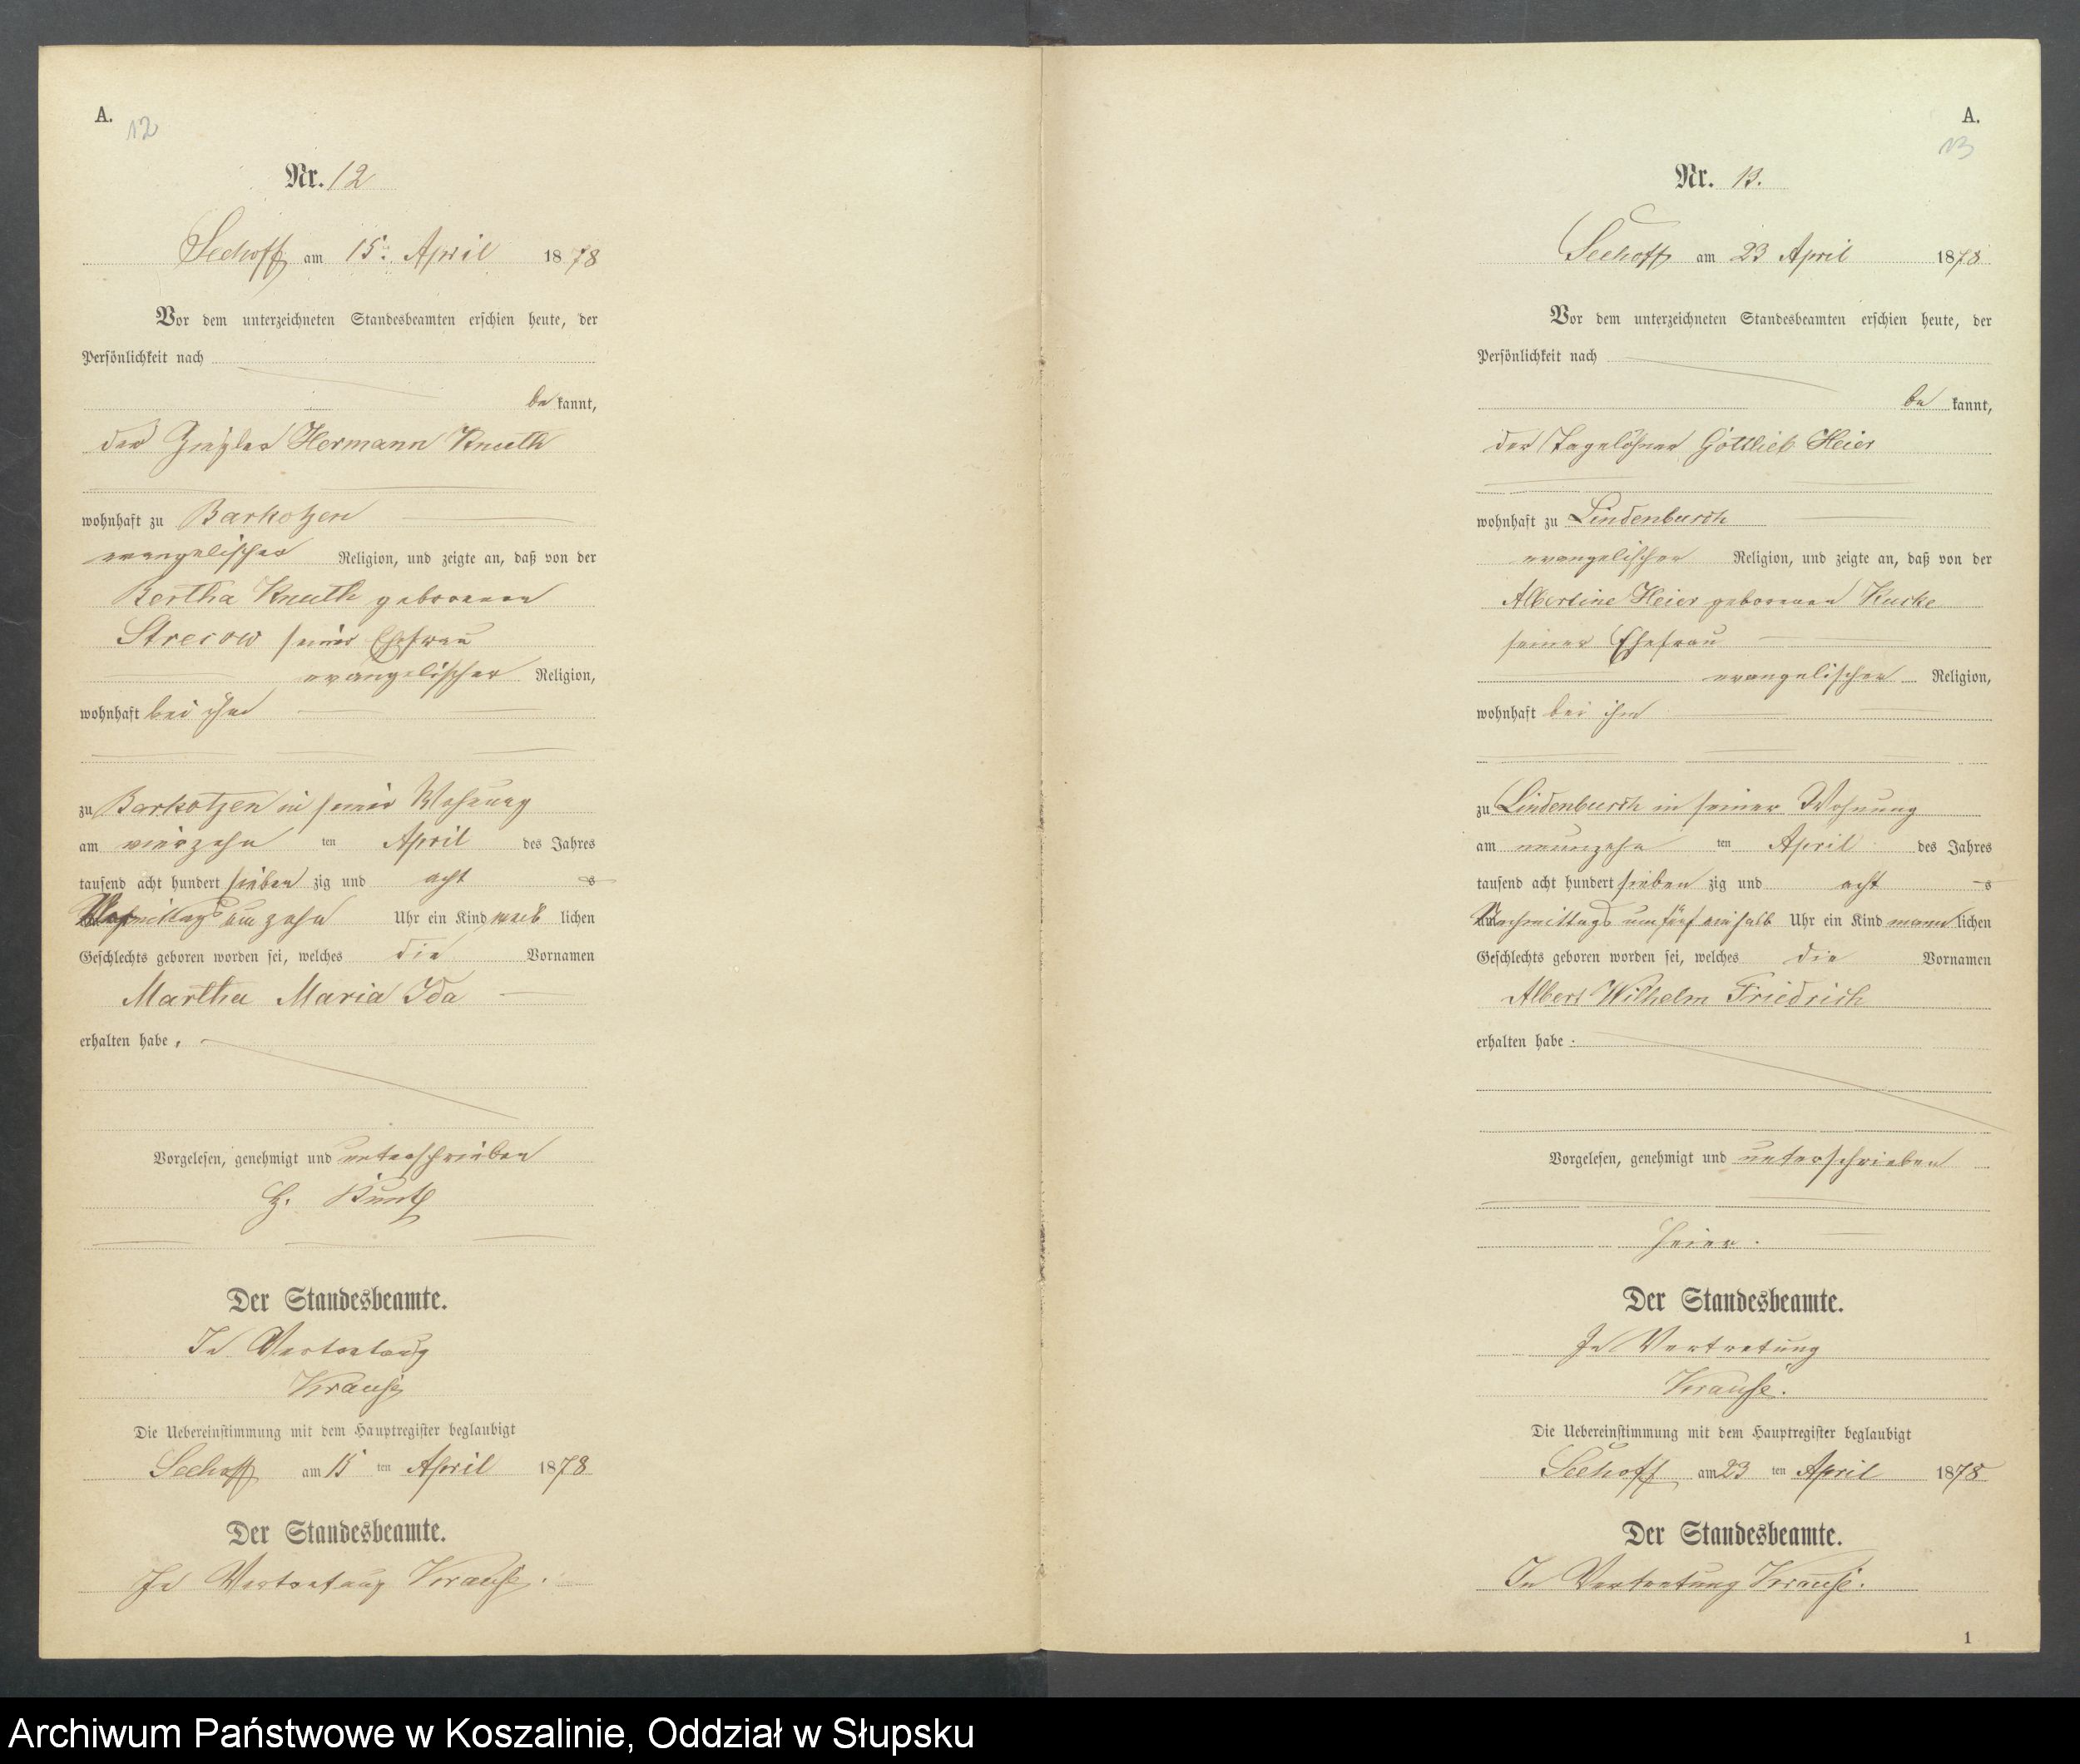 A.
12
Nr. 12
Seehoff am 15. April 1878
Vor dem unterzeichneten Standesbeamten erschien heute, der
Persönlichkeit nach
be kannt,
der Ziegler Hermann Knuth
wohnhaft zu Barkotzen
evangelischer Religion, und zeigte an, daß von der
Bertha Knuth geborenen
Strecow seiner Ehefrau
evangelischer Religion,
wohnhaft bei ihm
zu Barkotzen in seiner Wohnung
am vierzehn ten April des Jahres
tausend acht hundert sieben zig und acht
um zehn Uhr ein Kind weib lichen
Geschlechts geboren worden sei, welches die Vornamen
Martha Maria Ida
erhalten habe.
Vorgelesen, genehmigt und unterschrieben
H.
Der Standesbeamte.
In Vertretung
Krause
Die Uebereinstimmung mit dem Hauptregister beglaubigt
Seehoff am 15 ten April 1878
Der Standesbeamte.
In Vertretung Krause.
A.
13
Nr. 13.
Seehoff am 23 April 1878
Vor dem unterzeichneten Standesbeamten erschien heute, der
Persönlichkeit nach
be kannt,
der Tagelöhner Gottlieb Heier
wohnhaft zu Lindenbusch
evangelischer Religion, und zeigte an, daß von der
Albertine Heier geborenen Kuske
seiner Ehefrau
evangelischer Religion,
wohnhaft bei ihm
zu Lindenbusch in seiner Wohnung
am neunzehn ten April des Jahres
tausend acht hundert sieben zig und acht
Nachmittags um fünf einhalb Uhr ein Kind männ lichen
Geschlechts geboren worden sei, welches die Vornamen
Albert Wilhelm Friedrich
erhalten habe.
Vorgelesen, genehmigt und unterschrieben
Heier.
Der Standesbeamte.
In Vertretung
Krause.
Die Uebereinstimmung mit dem Hauptregister beglaubigt
Seehoff am 23 ten April 1878
Der Standesbeamte.
In Vertretung Krause.
1
Archiwum Państwowe w Koszalinie, Oddział w Słupsku